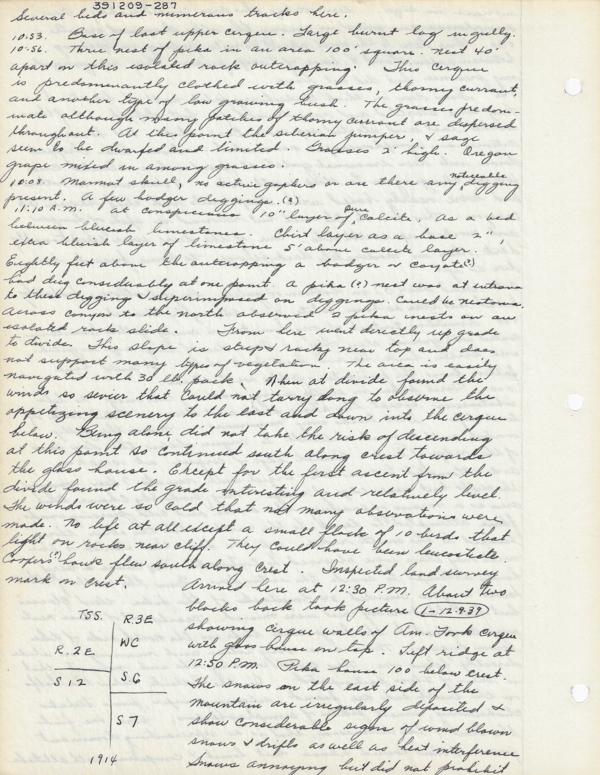 391209-287
Several beds and numerous tracks here.
10:53. Base of last upper cirque. Large burnt log in gully.
10:56. Three nest of pika in an area 100' square. nest 40'
apart on this isolated rock outcropping. This cirque
is predominantly clothed with grasses, thorny currant,
and another type of low growing bush. The grasses predom-
inate although many patches of thorny currant are dispersed
throughout. At this point the siberian juniper, & sage
seem to be dwarfed and limited. Grasses 2' high. Oregon
grape mixed in among grasses.
10:08. Marmot skull, no active gophers or are there any noticeable digging
present. A few badger diggings. (?)
11:10 A.M. at conspicuous 10" layer of pure calcite, as a bed
between blueish limestones. Chirt layer as a base 2",
extra bluish layer of limestone 5' above calcite layer.
Eightly feet above the outcropping a badger or coyote (?)
had dug considerably at one point. A pika (?) nest was at entrance
to these digging & superimposed on diggings. Could be neotoma.
Across canyon to the north observed 2 pika nests on an
isolated rock slide. From here went directly up grade
to divide. This slope is steep & rocky near top and does
not support many types of vegetation. The area is easily
navigated with 30 lb. pack. When at divide found the
winds so sevier that could not tarry long to observe the
appetizing scenery to the east and down into the cirque
below. Being alone did not take the risk of descending
at this point so continued south along crest towards
the glass house. Except for the first ascent from the
divide found the grade interesting and relatively level.
The winds were so cold that not many observations were
made. No life at all except a small flock of 10 birds that
light on rocks near cliff. They could have been leucosticte.
Coopers (?) hawk flew south along crest. Inspected land survey
mark on crest.
Arrived here at 12:30 P.M. About two
blocks back took picture (1-12.9.39)
showing cirque walls of Am. Fork cirque
with glass house on top. Left ridge at
12:50 P.M. Pika house 100' below crest.
The snows on the east side of the
mountain are irregularly deposited &
show considerable signs of wind blown
snows & drifts as well as heat interference
Snows annoying but did not prohibit
T5S. R3E
R.2E WC
S12 S.6
S7
1914